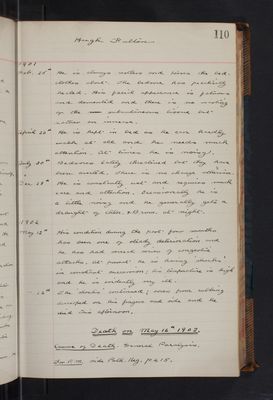 110
Hugh Fulton
1901
Feb. 25th He is always restless and kicks the bed-
clothes about. The sacrum has practically
healed. His facial appearance is fatuous
and demented and there is no wasting
of the subcutaneous tissue but
rather an increase.
April 22nd He is kept in bed as he can hardly
walk at all and he needs much
attention. At times he is noisy.
July 30th Bedsores lately threatened but they have
been averted. There is no change otherwise.
Dec. 28th He is constantly wet and requires much
care and attention. Occasionally he is
a little noisy and he generally gets a
draught of Chlor. & Brom. at night.
1902
May 15th His condition during the past few months
has been one of steady deterioration and
he has had much more of congestive
attacks. At present he is having
in constant succession; his temperature is high
and he is evidently very ill.
" 16th The continued; was from
on his fingers and side and he
died this afternoon.
Death on May 16th 1902.
Cause of Death. General Paralysis.
For P.M. vide Path. Reg. p.